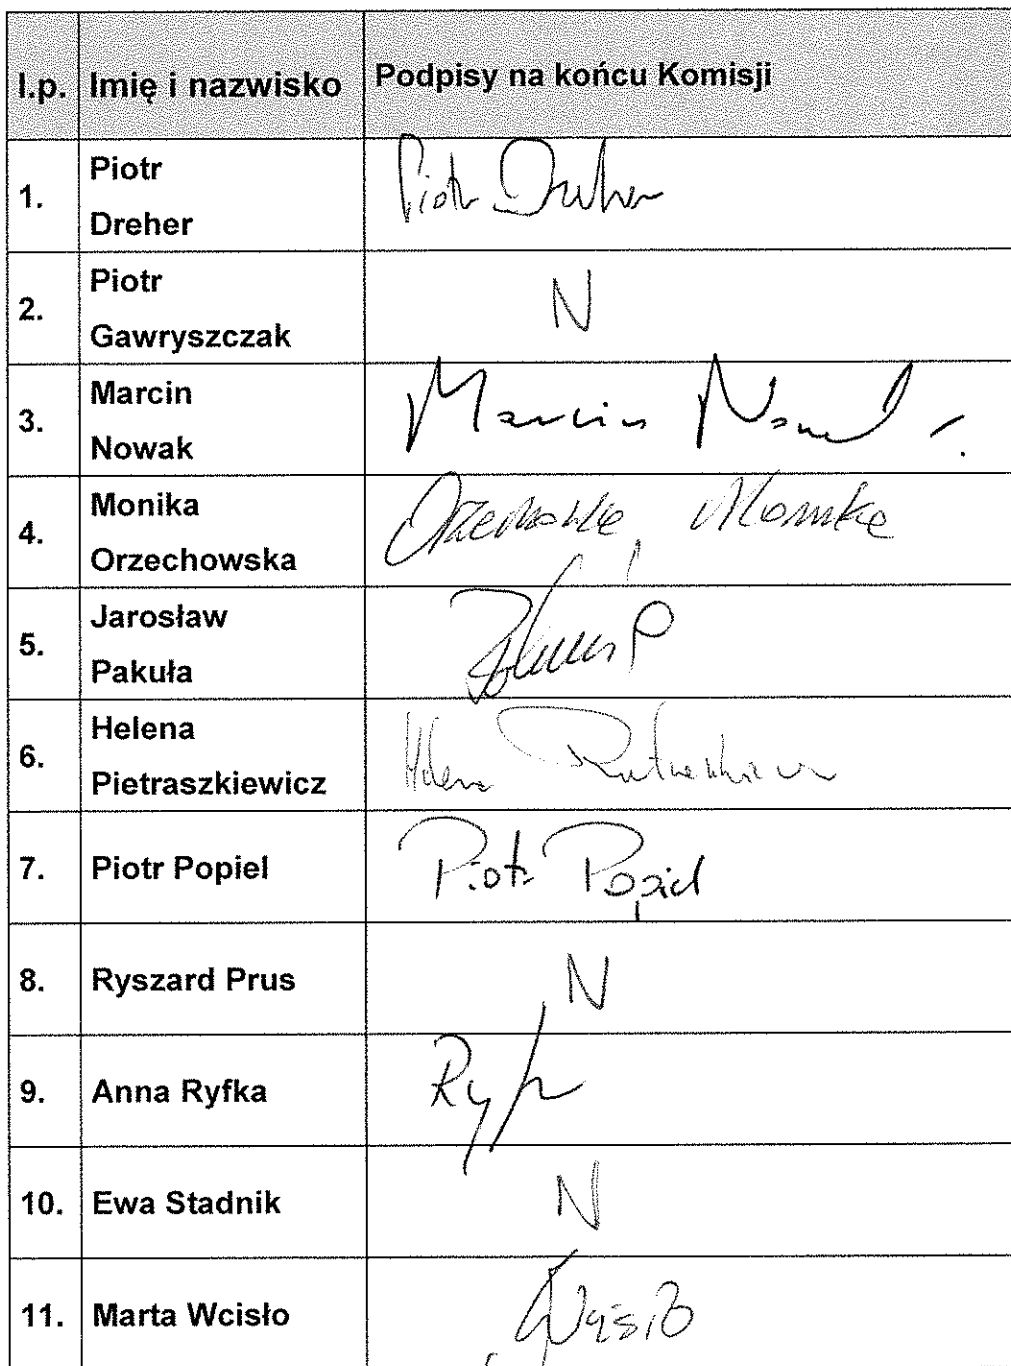 l.p. Imię i nazwisko Podpisy na końcu Komisji
1. Piotr Dreher Piotr Dreher
2. Piotr Gawryszczak N
3. Marcin Nowak Marcin Nowak
4. Monika Orzechowska Orzechowska Monika
5. Jarosław Pakuła
6. Helena Pietraszkiewicz Helena Pietraszkiewicz
7. Piotr Popiel Piotr Popiel
8. Ryszard Prus N
9. Anna Ryfka
10. Ewa Stadnik N
11. Marta Wcisło